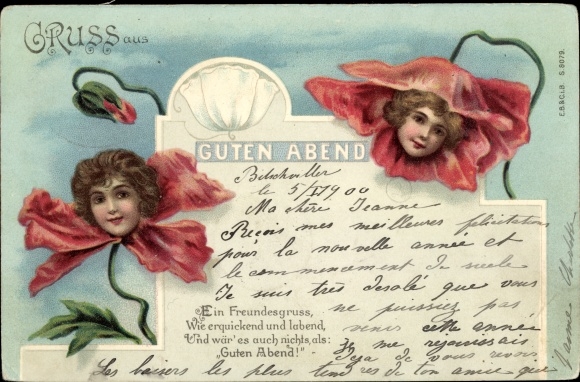 GRUSS aus
E.B.&C.i.B. S. 8079.
GUTEN ABEND
Bitschwiller
le 5/I 1900
Ma chère Jeanne
Reçois mes meilleures félicitations
pour la nouvelle année et
le commencement de siecle
Je suis très désolé que vous
ne puissiez pas
venir cette année
Je me rejouissais
déja de vous revoir.
Ein Freundesgruss,
Wie erquickend und labend,
Und wär' es auch nichts, als:
„Guten Abend!"
Les baisers les plus tendres de ton amie que